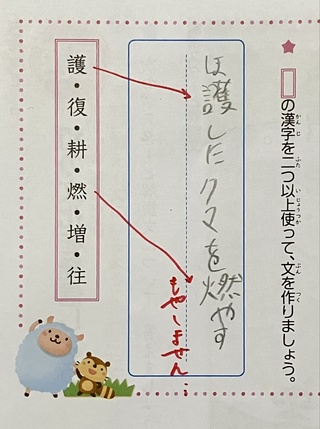 ★□の漢字を二つ以上使って、文を作りましょう。
ほ護したクマを燃やす
もやしません…
護・復・耕・燃・増・往